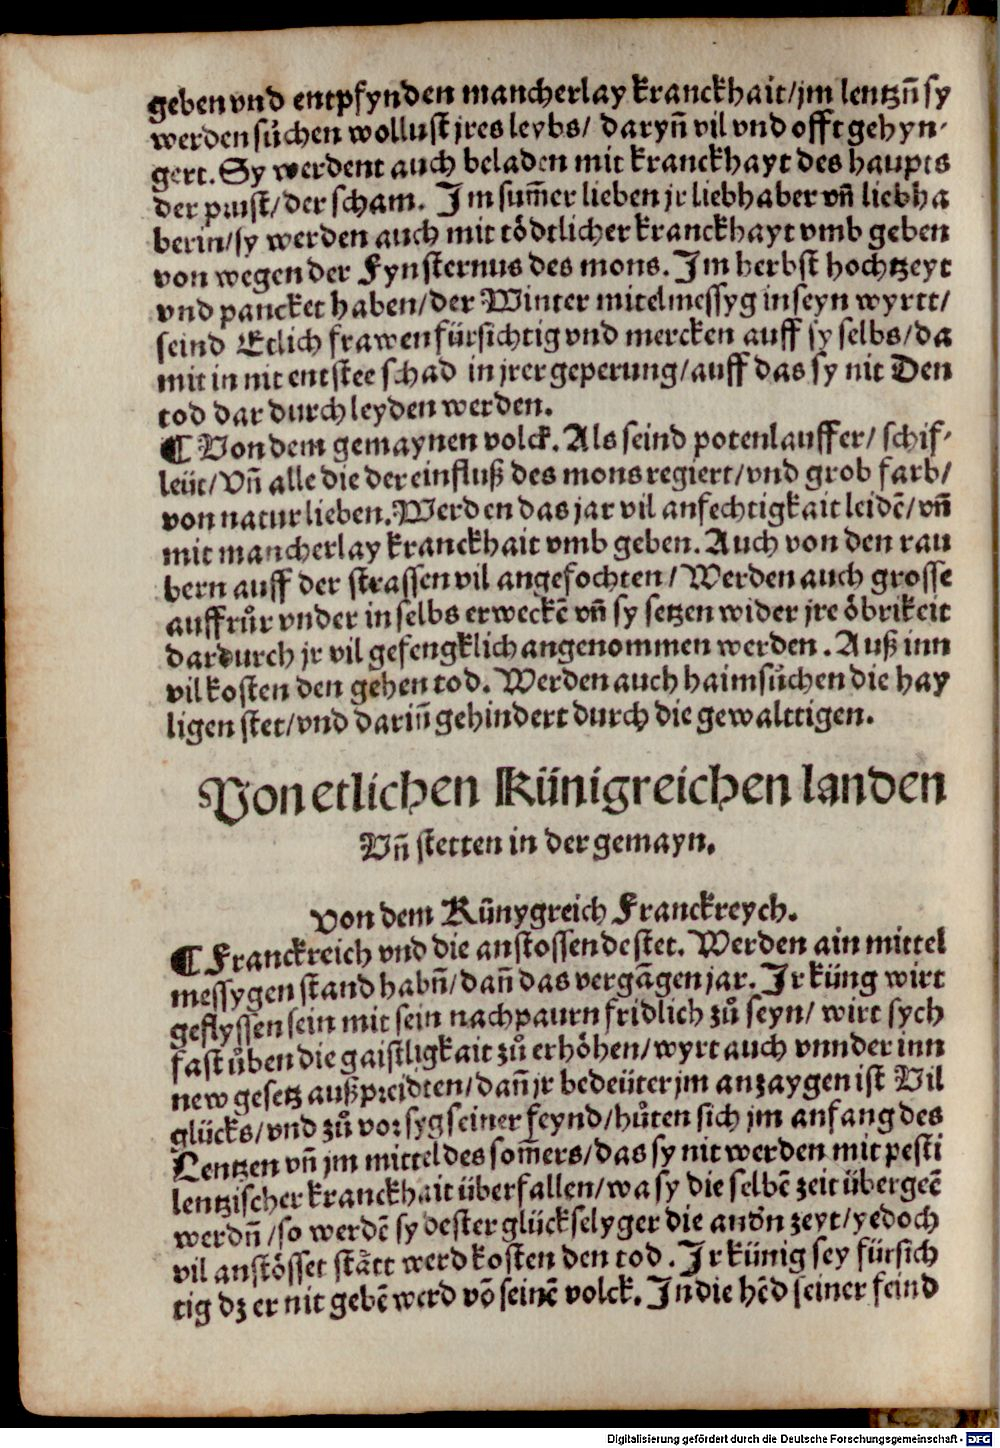 geben vnd entpfynden mancherlay kranckhait/jm lentzn̄ sy
werden sůchen wollust jres leybs/ daryn̄ vil vnd offt gehyn-
gert. Sy werdent auch beladen mit kranckhayt des haupts
der prust/der scham. Im sum̄er lieben jr liebhaber vn̄ liebha
berin/sy werden auch mit tödtlicher kranckhayt vmb geben
von wegen der Fynsternus des mons. Im herbst hochtzeyt
vnd pancket haben/der Winter mitelmessyg in seyn wyrtt/
seind Etlich frawen fürsichtig vnd mercken auff sy selbs/da
mit in nit entstee schad in jrer geperung/auff das sy nit Den
tod dar durch leyden werden.
¶ Von dem gemaynen volck. Als seind potenlauffer/ schif-
leüt/Vn̄ alle die der einfluß des mons regiert/vnd grob farb/
von natur lieben. Werden das jar vil anfechtigkait leidē/vn̄
mit mancherlay kranckhait vmb geben. Auch von den rau
bern auff der strassen vil angefochten/Werden auch grosse
auffrůr vnder in selbs erweckē vn̄ sy setzen wider jre öbrikeit
dardurch jr vil gefengklich angenommen werden. Auß inn
vil kosten den gehen tod. Werden auch haimsůchen die hay
ligen stet/vnd darin̄ gehindert durch die gewalttigen.
Von etlichen Künigreichen landen
Vn̄ stetten in der gemayn.
Von dem Künygreich Franckreych.
¶ Franckreich vnd die anstossende stet. Werden ain mittel
messygen stand habn̄/dan̄ das vergāgen jar. Ir küng wirt
geflyssen sein mit sein nachpaurn fridlich zů seyn/ wirt sych
fast ůben die gaistligkait zů erhöhen/wyrt auch vnnder inn
new gesetz außpreidten/dan̄ jr bedeüter jm anzaygen ist Vil
glücks/vnd zů vor syg seiner feynd/hůten sich jm anfang des
Lentzen vn̄ jm mittel des som̄ers/das sy nit werden mit pesti
lentzischer kranckhait überfallen/wa sy die selbē zeit übergeē
werdn̄/so werdē sy dester glückselyger die andn̄ zeyt/yedoch
vil anstösset stätt werd kosten den tod. Ir künig sey fürsich
tig dz er nit gebē werd vō seinē volck. In die hēd seiner feind
Digitalisierung gefördert durch die Deutsche Forschungsgemeinschaft - DFG